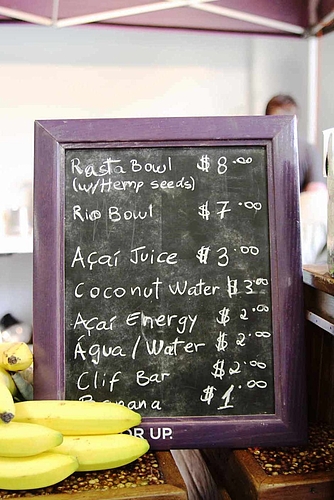 Rasta Bowl $8.00
(w/Hemp seeds)
Rio Bowl $7.00
Açaí Juice $3.00
Coconut Water $3.00
Açaí Energy $2.00
Água/Water $2.00
Clif Bar $2.00
Banana $1.00
OR UP.